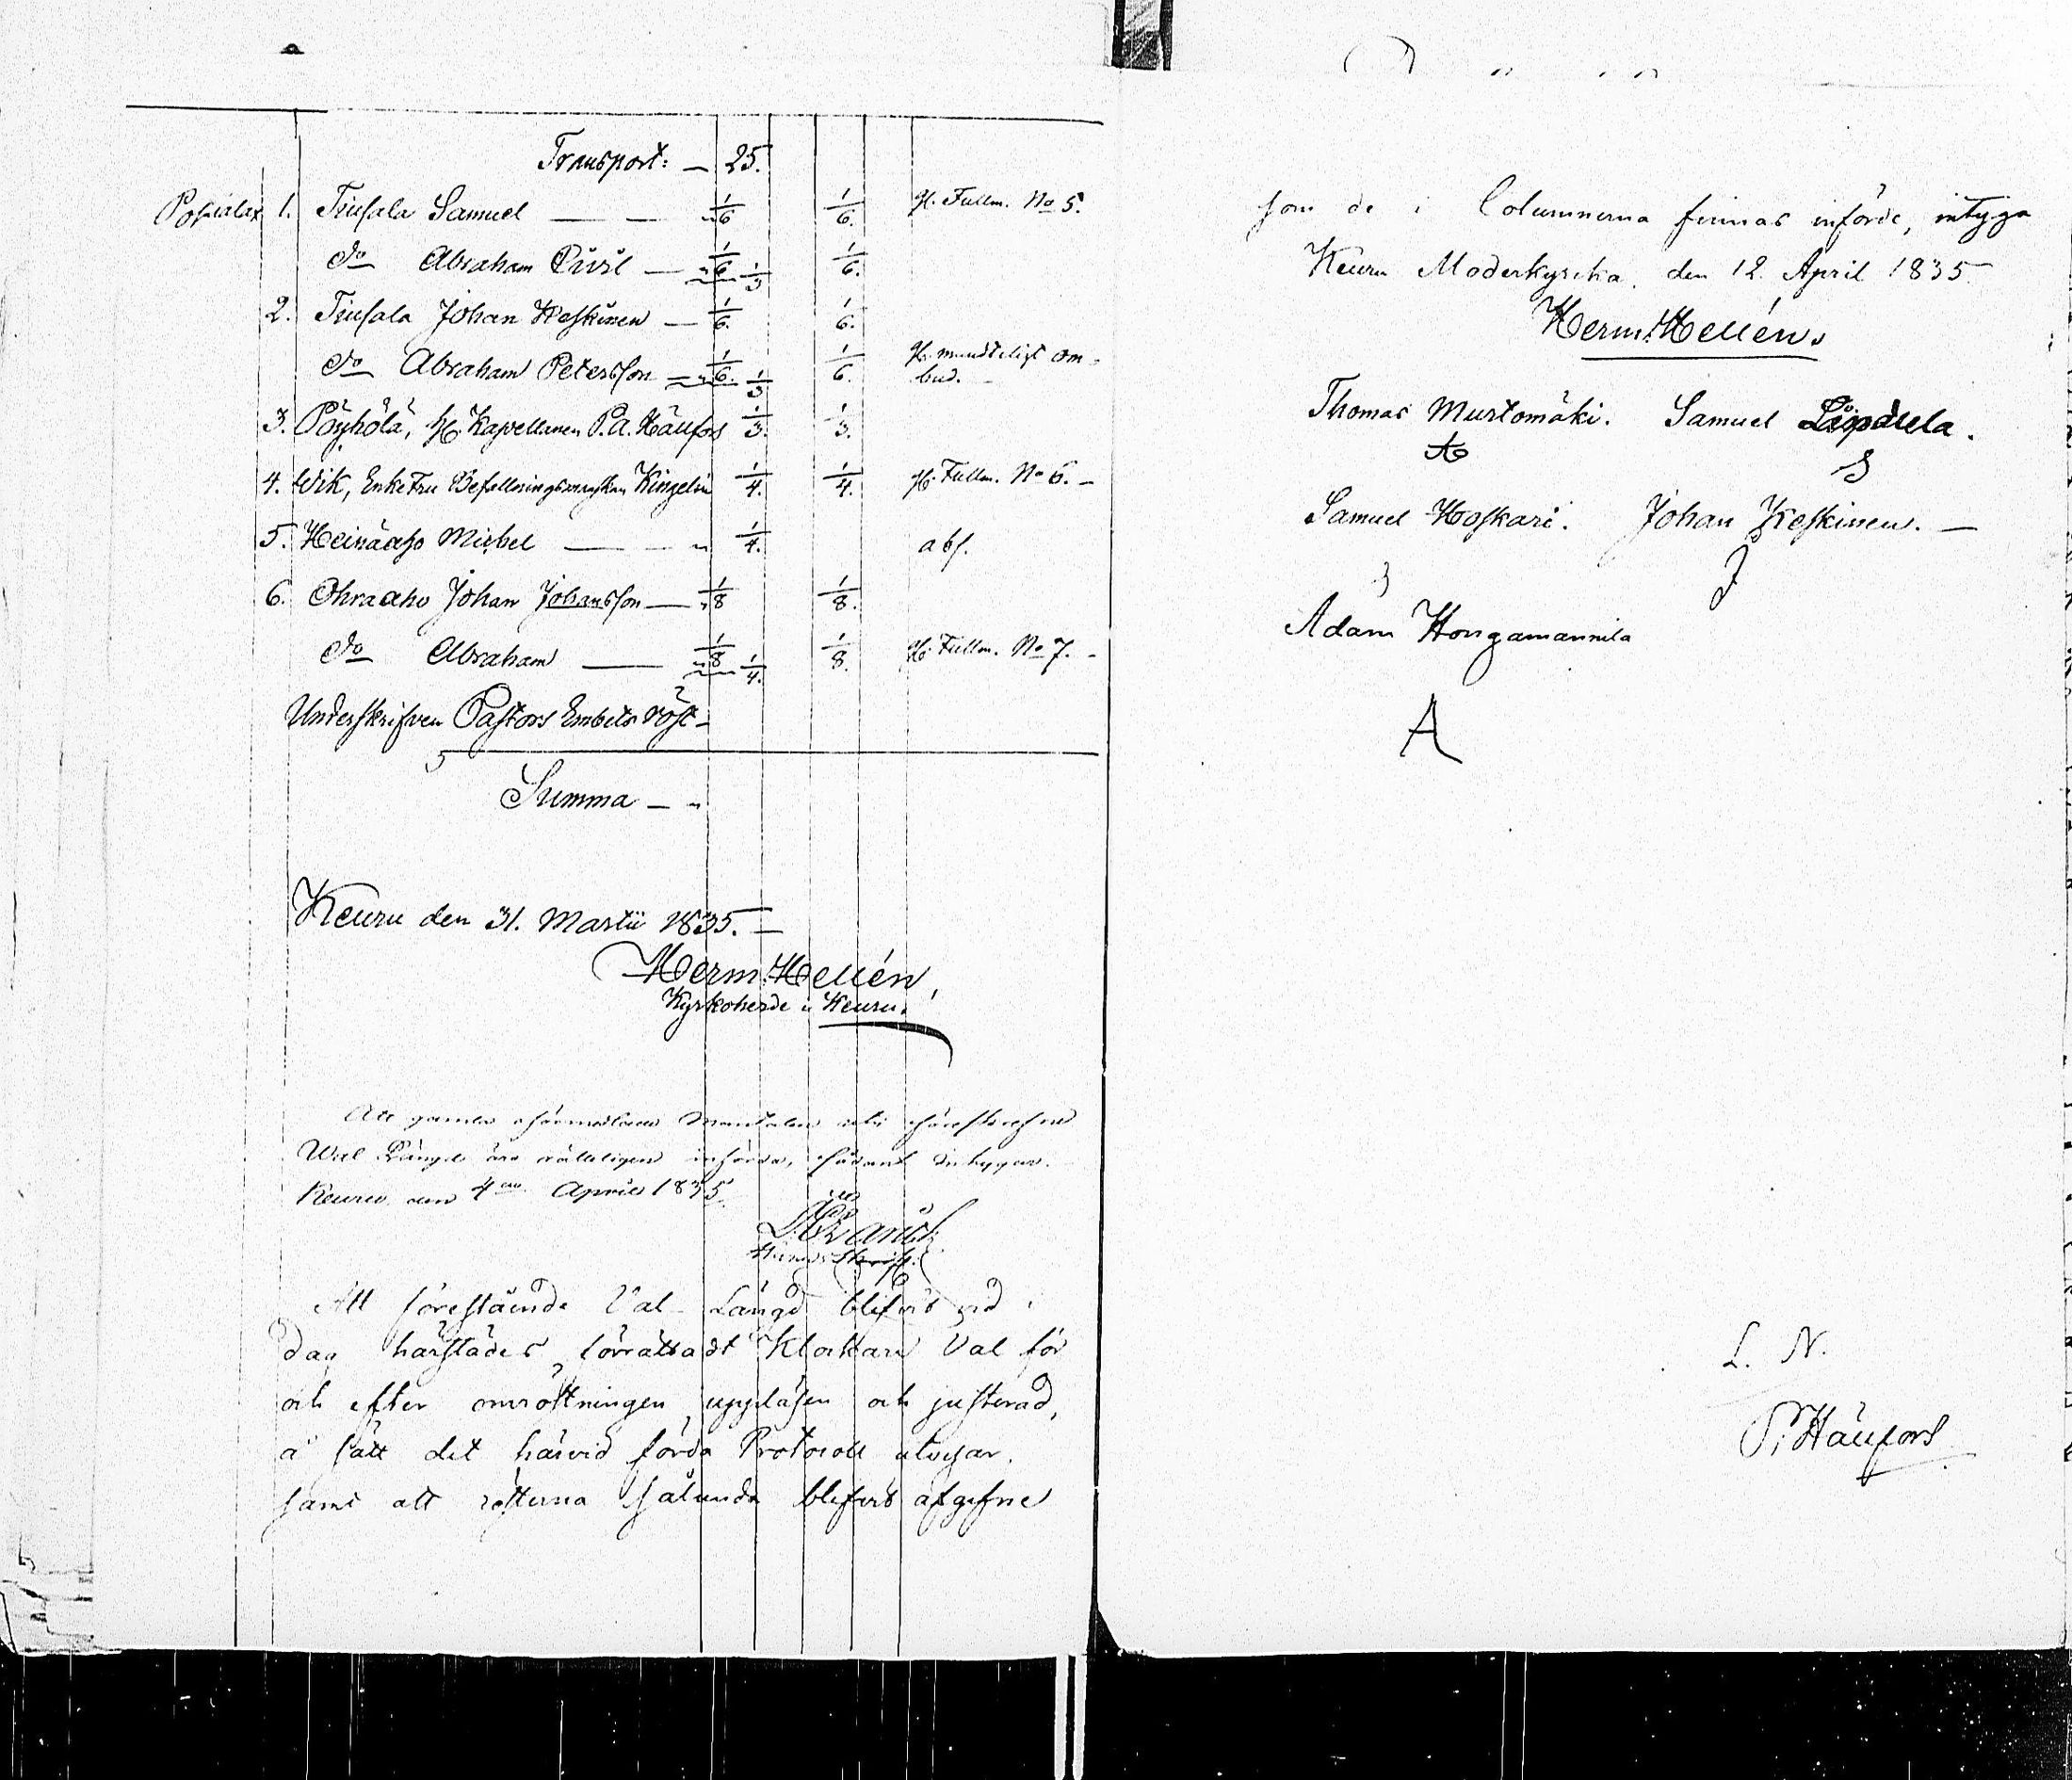 Transport: — 25.
1. Tiusala Samuel — — " 1/6 1/6. gm. Fullm. No 5.
do Abraham — " 1/6 1/3 1/6.
2. Tiusala Johan Keskinen — 1/6. 1/6.
do Abraham Petersson — " 1/6. 1/3 1/6. gm. mundteligt om-
bud.
3. Pöyhölä, H. Kapellanen P. A. Häufos 1/3. 1/3.
4. Wik, Enke Fru Befallningsmanskan Kingelin 1/4. 1/4. gm. Fullm. No 6. —
5. Heinäaho Michel — — " 1/4. abs.
6. Ohraaho Johan Johansson — " 1/8 1/8.
do Abraham — " 1/8 1/4. 1/8. gm. Fullm. No 7. —
Underskrifven Pastors Embets röst —
Summa — "
Keuru den 31. Martii 1835. —
Herm. Hellén,
Kyrkoherde i Keuru.
Att
Wal Längd äro införda, sådant intygar.
Keuru den 4de April 1835.
Att förestående Val-Längd blifvit vid i
dag härstädes förrättadt Klockare Val för
och efter omröstningen uppläsen och justerad,
å sätt det härvid förda Protocoll utvisar,
samt att rösterna sålunda blifvit afgifne
som de i Columnerna finnas införde, intyga
Keuru Moderkyrka, den 12. April 1835.
Herm. Hellén.
Thomas Murtomäki. Samuel
Samuel Hoskari. Johan Keskinen. —
J
Adam Hongamannila
A
L. N.
P. Häufors